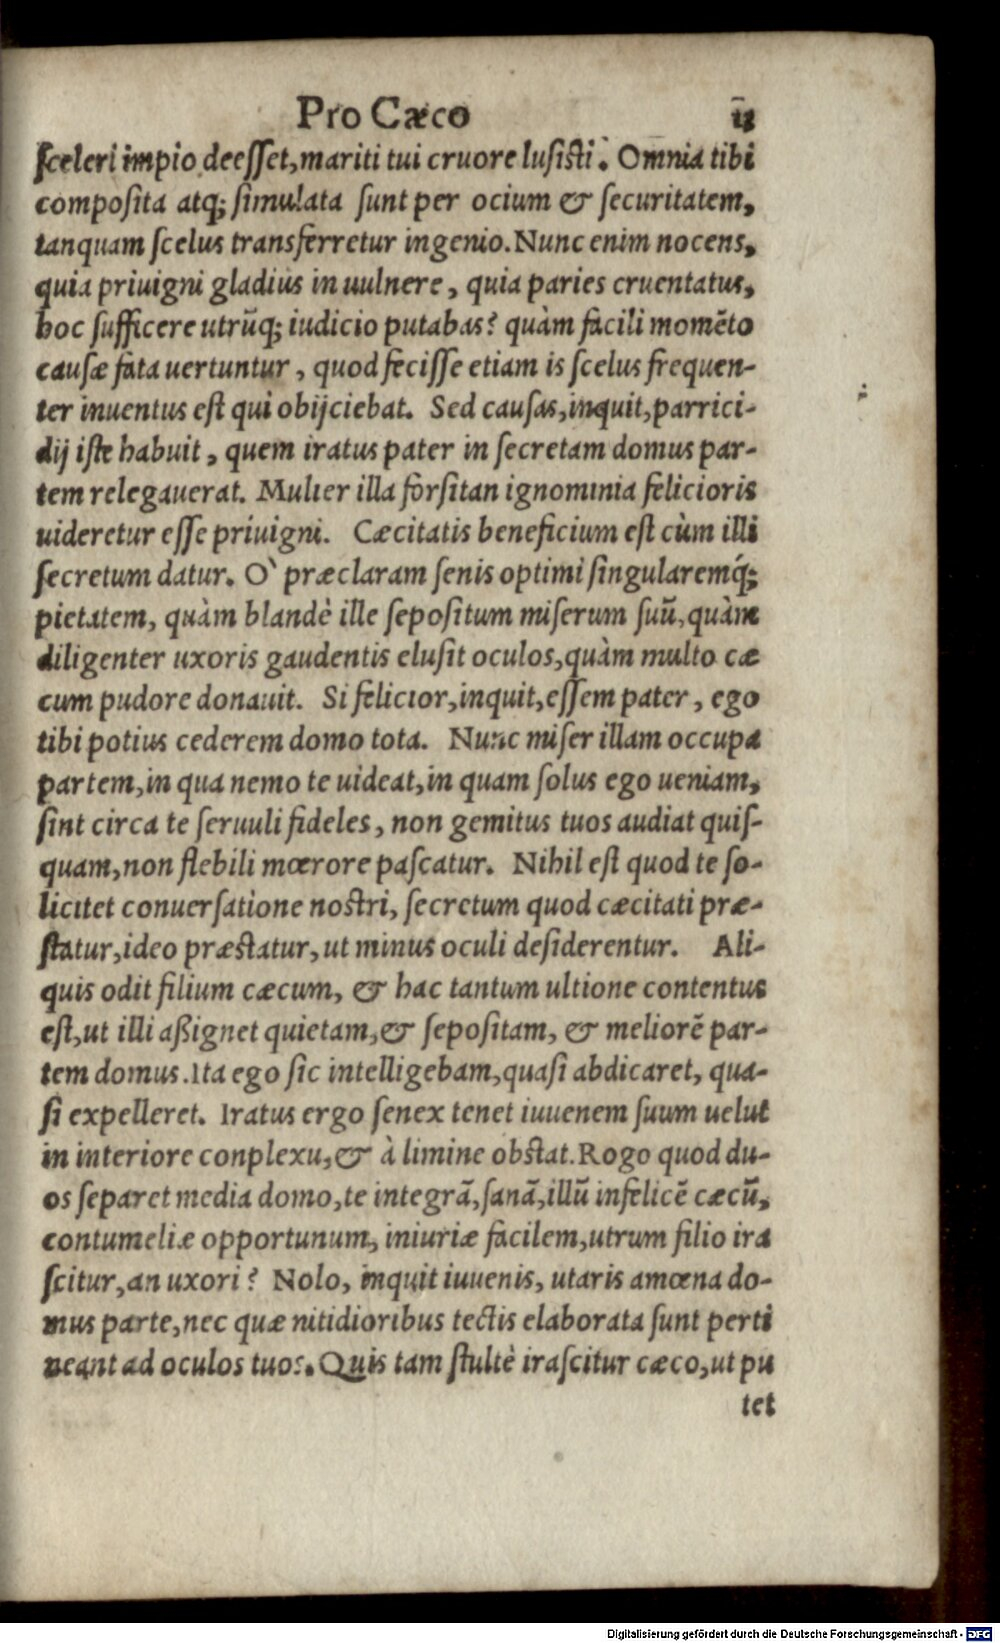 Pro Cæco 11
ſceleri impio deeſſet, mariti tui cruore luſiſti. Omnia tibi
compoſita atq; ſimulata ſunt per ocium & ſecuritatem,
tanquam ſcelus transferretur ingenio. Nunc enim nocens,
quia priuigni gladius in uulnere, quia paries cruentatus,
hoc ſufficere utrũq; iudicio putabas? quàm facili momẽto
cauſæ fata uertuntur, quod feciſſe etiam is ſcelus frequen-
ter inuentus eſt qui obijciebat. Sed cauſas, inquit, parrici-
dij iſte habuit, quem iratus pater in ſecretam domus par-
tem relegauerat. Mulier illa forſitan ignominia felicioris
uideretur eſſe priuigni. Cæcitatis beneficium eſt cùm illi
ſecretum datur. O` præclaram ſenis optimi ſingularemq́;
pietatem, quàm blandè ille ſepoſitum miſerum ſuũ, quàm
diligenter uxoris gaudentis eluſit oculos, quàm multo cæ
cum pudore donauit. Si felicior, inquit, eſſem pater, ego
tibi potius cederem domo tota. Nunc miſer illam occupa
partem, in qua nemo te uideat, in quam ſolus ego ueniam,
ſint circa te ſeruuli fideles, non gemitus tuos audiat quiſ-
quam, non flebili mœrore paſcatur. Nihil eſt quod te ſo-
licitet conuerſatione noſtri, ſecretum quod cæcitati præ-
ſtatur, ideo præſtatur, ut minus oculi deſiderentur. Ali-
quis odit filium cæcum, & hac tantum ultione contentus
eſt, ut illi aßignet quietam, & ſepoſitam, & meliorẽ par-
tem domus. Ita ego ſic intelligebam, quaſi abdicaret, qua-
ſi expelleret. Iratus ergo ſenex tenet iuuenem ſuum uelut
in interiore conplexu, & à limine obſtat. Rogo quod du-
os ſeparet media domo, te integrã, ſanã, illũ infelicẽ cæcũ,
contumeliæ opportunum, iniuriæ facilem, utrum filio ira
ſcitur, an uxori? Nolo, inquit iuuenis, utaris amœna do-
mus parte, nec quæ nitidioribus tectis elaborata ſunt perti
neant ad oculos tuos. Quis tam ſtultè iraſcitur cæco, ut pu
tet
Digitalisierung gefördert durch die Deutsche Forschungsgemeinschaft - DFG